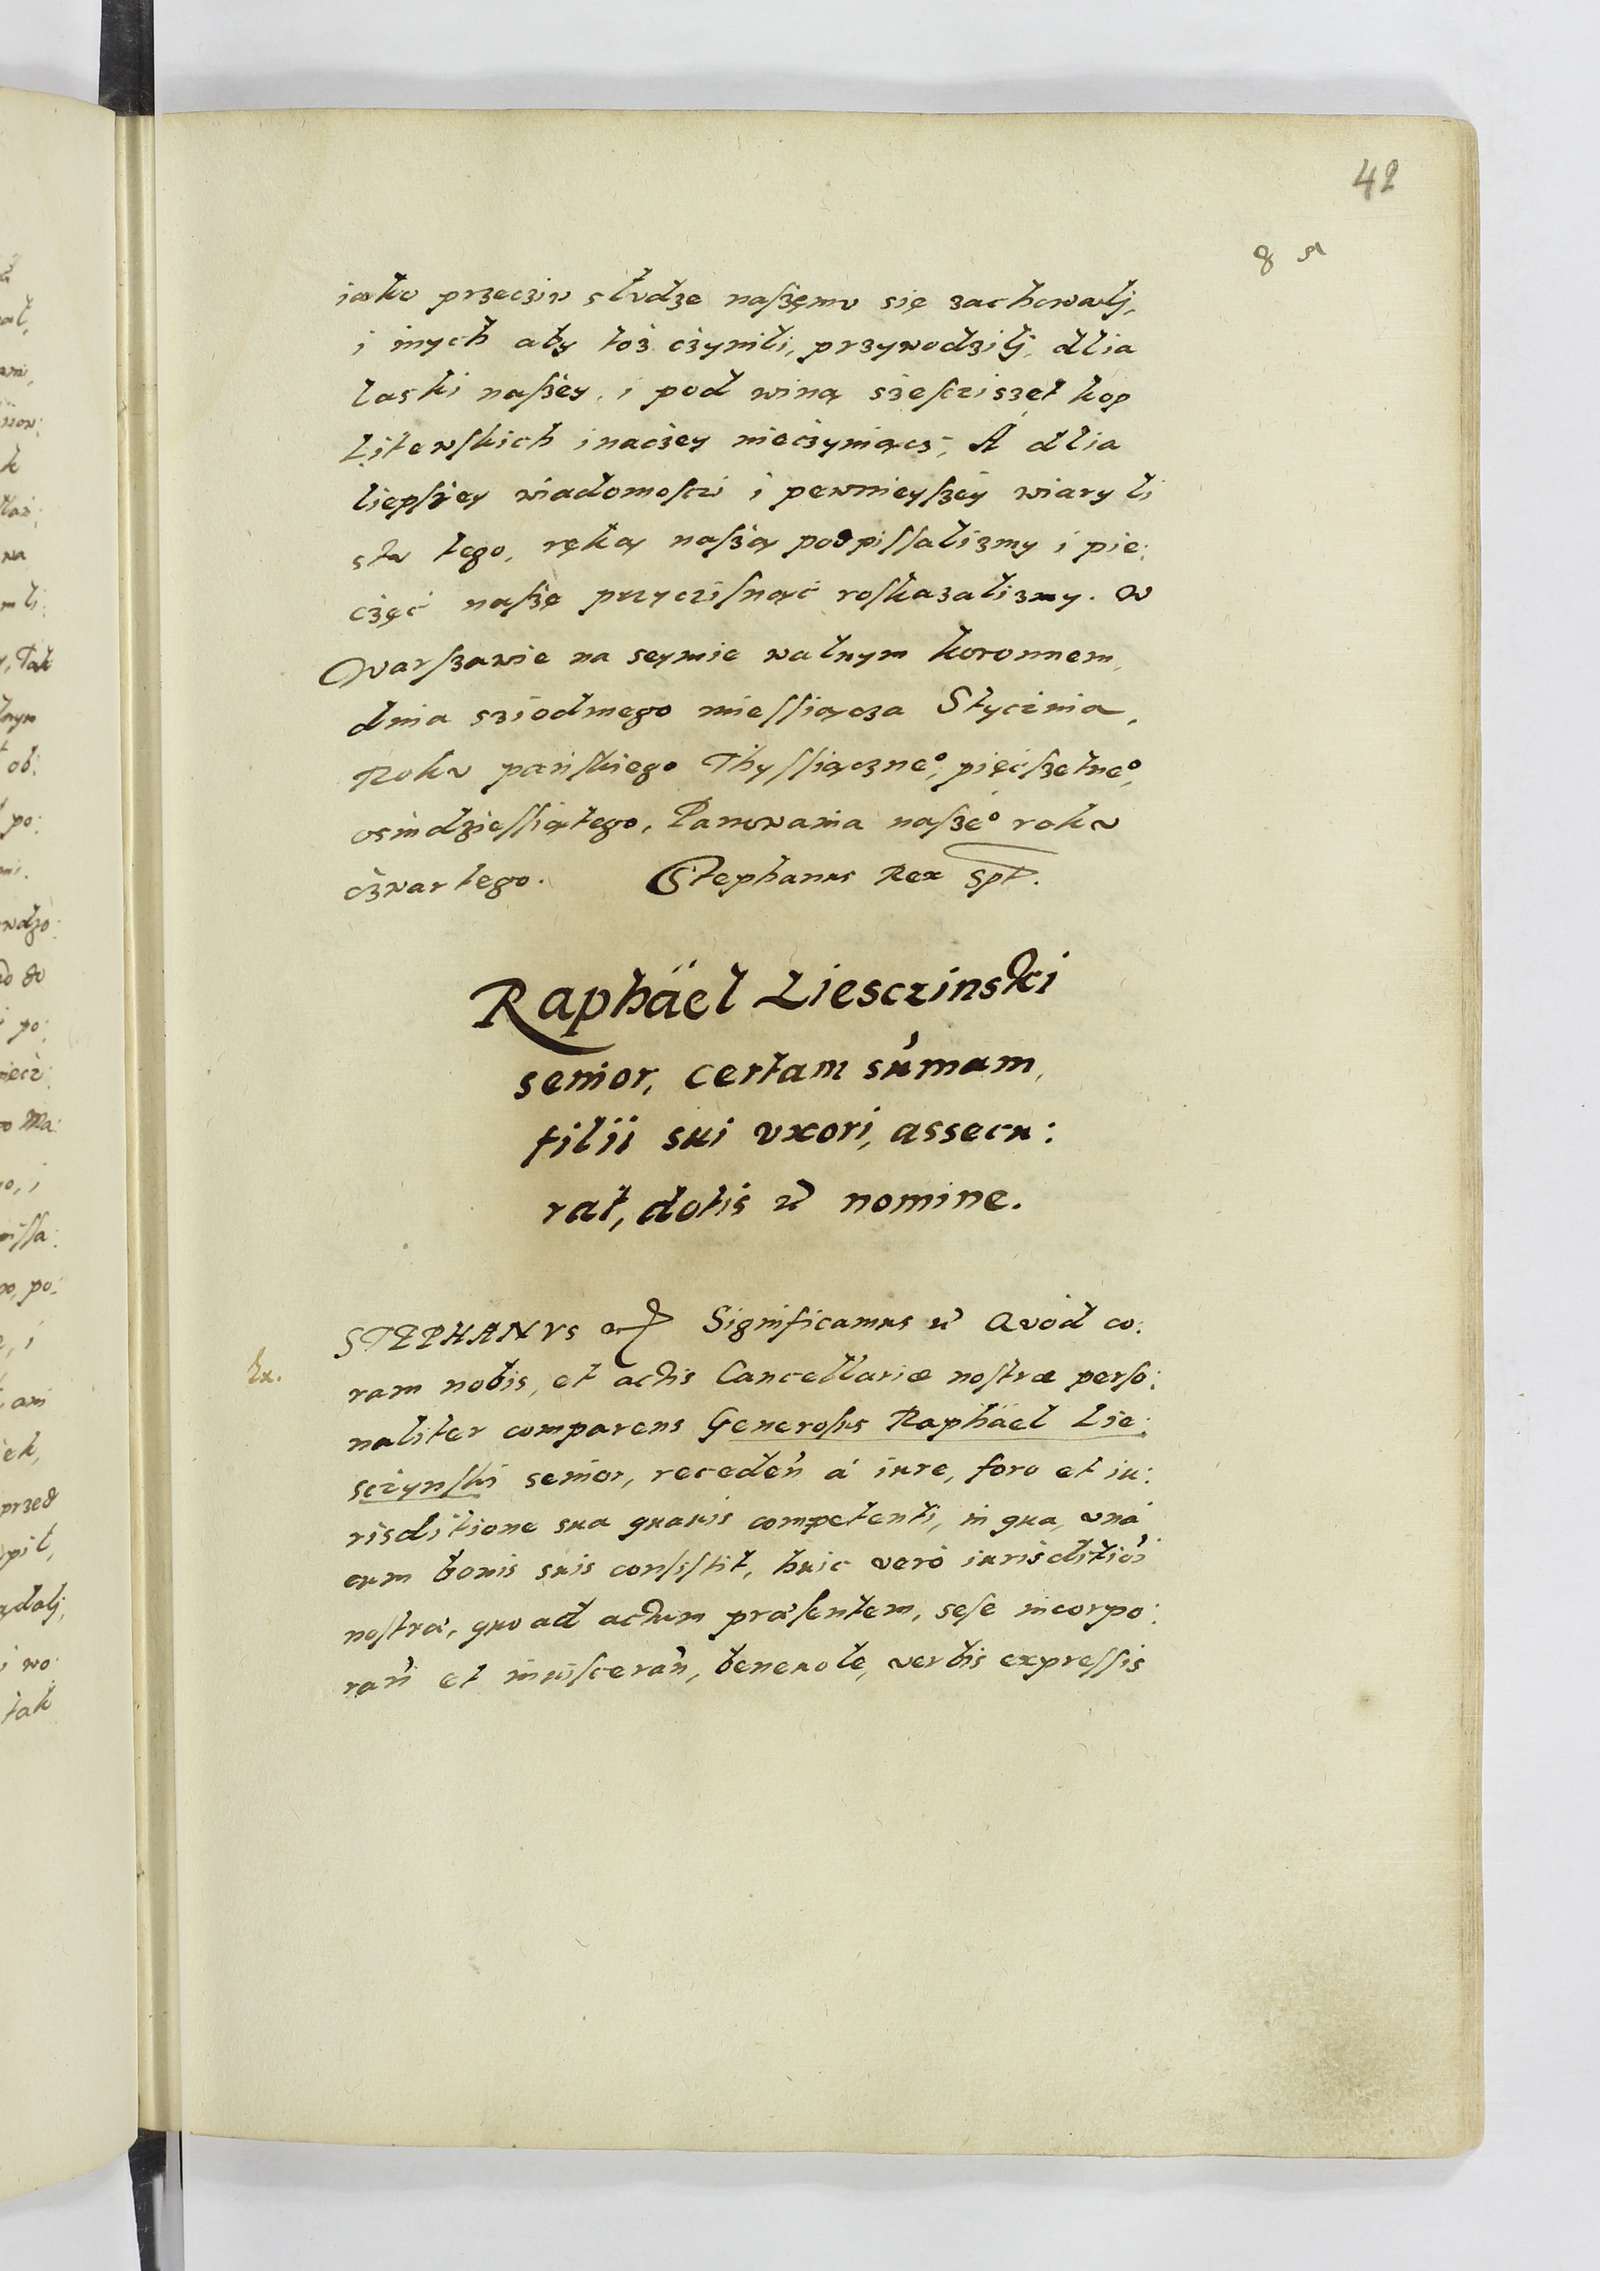 42
iako przeciw słudze naszęmu się zachowalj,
i inych aby toż cżynili, przywodzilj, dlia
laski naszey, i pod winą sześcziszęt kop
Litewskich inaczey nieczyniącz, A dlia
liepszey wiadomości i pewnieyszey wiary li
stu tego, ręką naszą podpissalizmy i pie:
częć naszę przyczisnąć roskazalizmy. W
Warszawie na seymie walnym koronnem,
dnia sziodmego miessiącza Stycznia,
Roku pańskiego Thyssiączneo, pięćszetneo,
osmdziessiątego, Panowania naszeo roku
czwartego. Stephanus Rex Spt.
Raphäel Liesczinski
senior, certam sumam,
filii sui vxori, assecu:
rat, dotis nomine.
STEPHANVS Significamus Quod co:
ram nobis, et actis Cancellariæ nostræ perso:
naliter comparens Generosus Raphäel Lie:
sczynski senior, receden à iure, foro et iu:
risditione sua quauis competenti, in qua, vná
cum bonis suis consistit, huic verò iurisditioi
nostræ, quo ad actum præsentem, sese incorpo:
ran et inuisceran, beneuole, verbis expressis